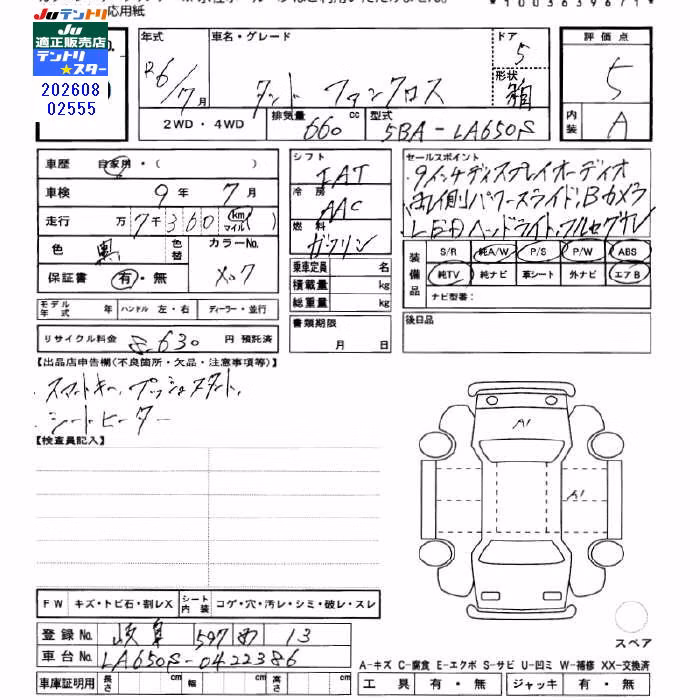 応用紙
*1003639671*
Juテントリ
Ju
適正販売店
テントリ
★スター
202608
02555
年式
R6/7月
車名・グレード
タント ファンクロス
ドア
5
形状
箱
評価点
5
内装
A
2WD・4WD
排気量
660
cc
型式
5BA-LA650S
車歴
自家用・( )
車検
9年 7月
走行
万 7千360
km
マイル
色
黒
色替
カラーNo.
X07
保証書
有・無
モデル年式
年
ハンドル 左・右
ディーラー・並行
リサイクル料金
8,630
円 預託済
シフト
IAT
冷房
AAC
燃料
ガソリン
乗車定員
名
積載量
kg
総重量
kg
書類期限
月 日
セールスポイント
9インチディスプレイオーディオ
両側パワースライド,Bカメラ
LEDヘッドライト,フルセグTV
装備品
S/R
純A/W
P/S
P/W
ABS
純TV
純ナビ
革シート
外ナビ
エアB
ナビ型番:
後日品
【出品店申告欄(不良箇所・欠品・注意事項等)】
スマートキー、プッシュスタート、
シートヒーター
【検査員記入】
A1
A1
FW
キズ・トビ石・割レX
シート内装
コゲ・穴・汚レ・シミ・破レ・スレ
登録No.
岐阜 597 め 13
車台No.
LA650S-0422386
車庫証明用
長さ
cm
幅
cm
高さ
cm
スペア
A-キズ C-腐食 E-エクボ S-サビ U-凹ミ W-補修 XX-交換済
工具
有・無
ジャッキ
有・無